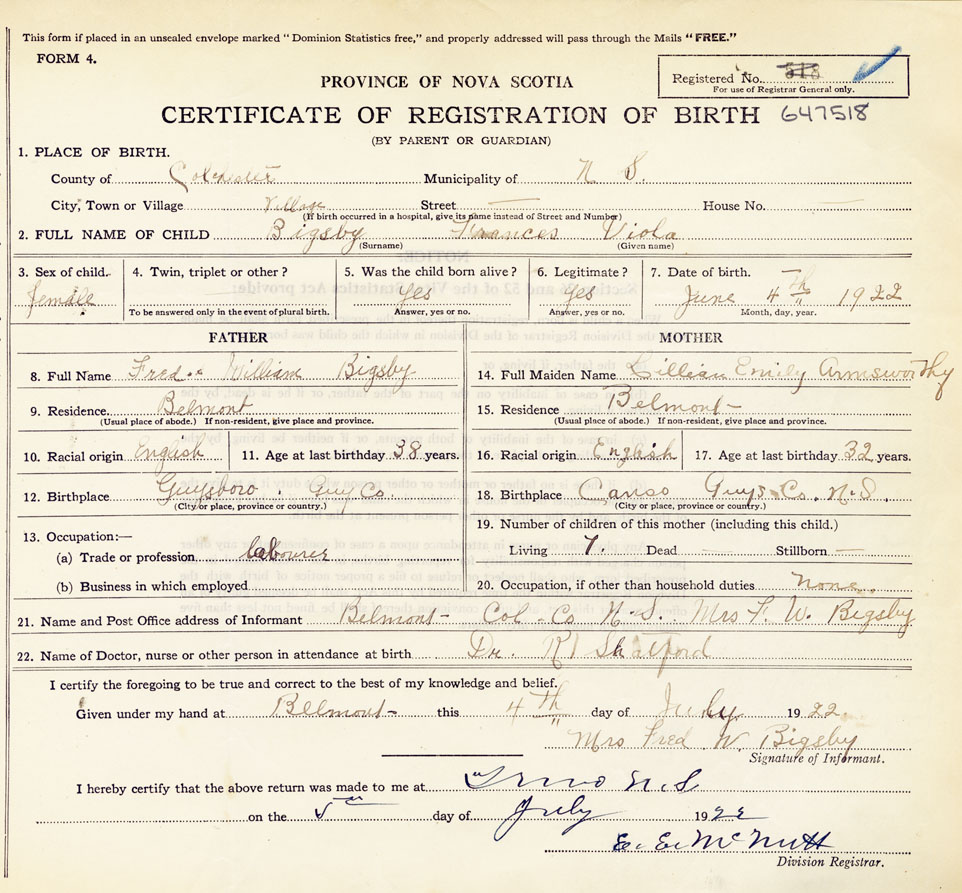 This form if placed in an unsealed envelope marked "Dominion Statistics free," and properly addressed will pass through the Mails "FREE."
FORM 4.
Registered No. 518
For use of Registrar General only.
PROVINCE OF NOVA SCOTIA
CERTIFICATE OF REGISTRATION OF BIRTH 647518
(BY PARENT OR GUARDIAN)
1. PLACE OF BIRTH.
County of Colchester Municipality of N S.
City, Town or Village Village Street — House No. —
(If birth occurred in a hospital, give its name instead of Street and Number)
2. FULL NAME OF CHILD Bigsby Frances Viola
(Surname) (Given name)
3. Sex of child. female
4. Twin, triplet or other?
To be answered only in the event of plural birth.
5. Was the child born alive? Yes
Answer, yes or no.
6. Legitimate? Yes
Answer, yes or no.
7. Date of birth. June 4th 1922
Month, day, year.
FATHER
8. Full Name Fred. William Bigsby
9. Residence. Belmont
(Usual place of abode.) If non-resident, give place and province.
10. Racial origin English 11. Age at last birthday 38 years.
12. Birthplace Guysboro. Guy Co.
(City or place, province or country.)
13. Occupation:—
(a) Trade or profession labourer
(b) Business in which employed
MOTHER
14. Full Maiden Name Lillian Emily Armsworthy
15. Residence Belmont
(Usual place of abode.) If non-resident, give place and province.
16. Racial origin English 17. Age at last birthday 32 years.
18. Birthplace Canso Guys. Co. N.S.
(City or place, province or country.)
19. Number of children of this mother (including this child.)
Living 7. Dead — Stillborn —
20. Occupation, if other than household duties None.
21. Name and Post Office address of Informant Belmont Col. Co. N.S. Mrs F. W. Bigsby
22. Name of Doctor, nurse or other person in attendance at birth Dr. Shatford
I certify the foregoing to be true and correct to the best of my knowledge and belief.
Given under my hand at Belmont this 4th day of July 1922.
Mrs Fred W. Bigsby
Signature of Informant.
I hereby certify that the above return was made to me at Truro N.S
on the 5th day of July 1922
E. E. McNutt
Division Registrar.